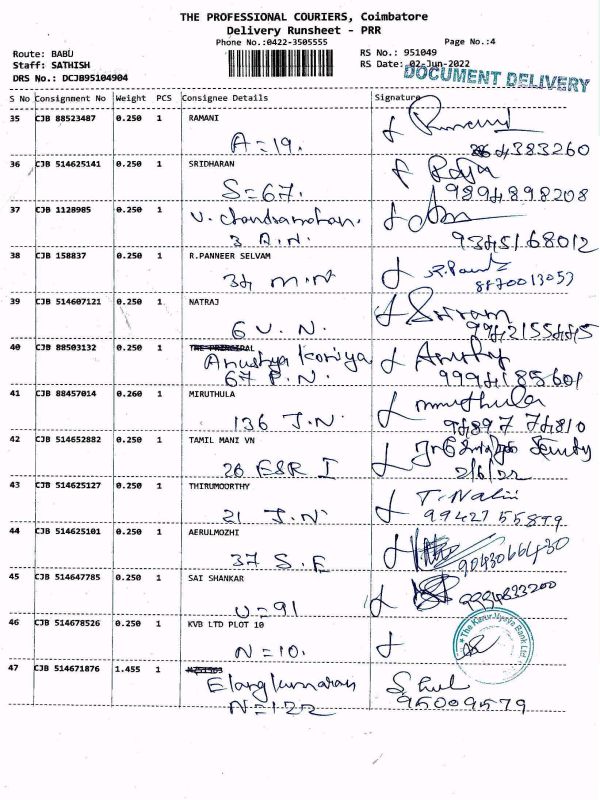 THE PROFESSIONAL COURIERS, Coimbatore
Delivery Runsheet - PRR
Phone No.:0422-3505555
Page No.:4
Route: BABU
RS No.: 951049
Staff: SATHISH
RS Date: 02-Jun-2022
DOCUMENT DELIVERY
DRS No.: DCJB95104904
S No Consignment No Weight PCS Consignee Details Signature
35 CJB 88523487 0.250 1 RAMANI
A=19.
383260
36 CJB 514625141 0.250 1 SRIDHARAN
S=67.
9894898208
37 CJB 1128985 0.250 1 V. Chandramohan.
3 A.N.
9345168012
38 CJB 158837 0.250 1 R.PANNEER SELVAM
34 M.N
8870013053
39 CJB 514607121 0.250 1 NATRAJ Sriram
6 V. N. 9942155445
40 CJB 88503132 0.250 1 THE PRINCIPAL
Anushya Koriya
67 P.N. 9994185601
41 CJB 88457014 0.260 1 MIRUTHULA
136 J.N. 94897 74810
42 CJB 514652882 0.250 1 TAMIL MANI VN
26 ESR I 2/6/22
43 CJB 514625127 0.250 1 THIRUMOORTHY T. Nalii
21 J.N. 99427 55899
44 CJB 514625101 0.250 1 AERULMOZHI
37 S.E 9043066430
45 CJB 514647785 0.250 1 SAI SHANKAR
U=91 9994823200
46 CJB 514678526 0.250 1 KVB LTD PLOT 10 The Karur Vysya Bank Ltd
N=10.
47 CJB 514671876 1.455 1
Elangkumaran
N=122 95009579